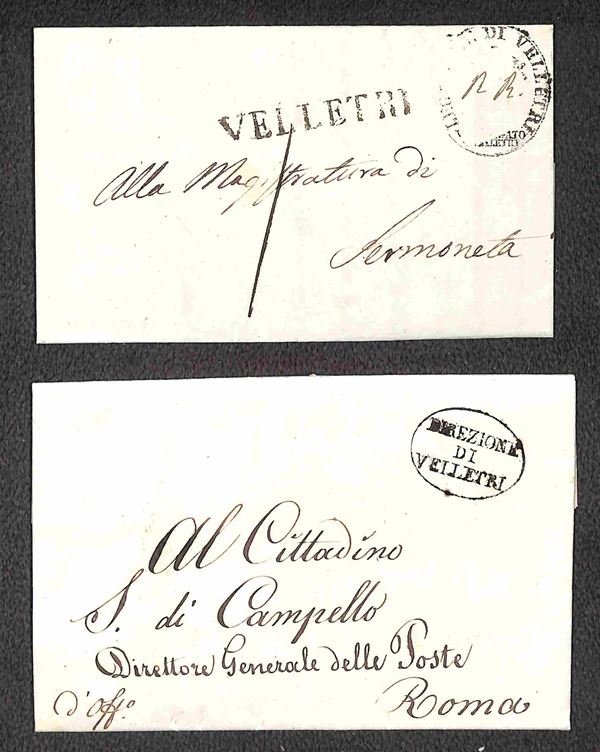 VELLETRI
DI VELLETRI
R R.
Alla Magistratura di
Sermoneta
DIREZIONE
DI
VELLETRI
Al Cittadino
S. di Campello
Direttore Generale delle Poste
d'Off.º
Roma